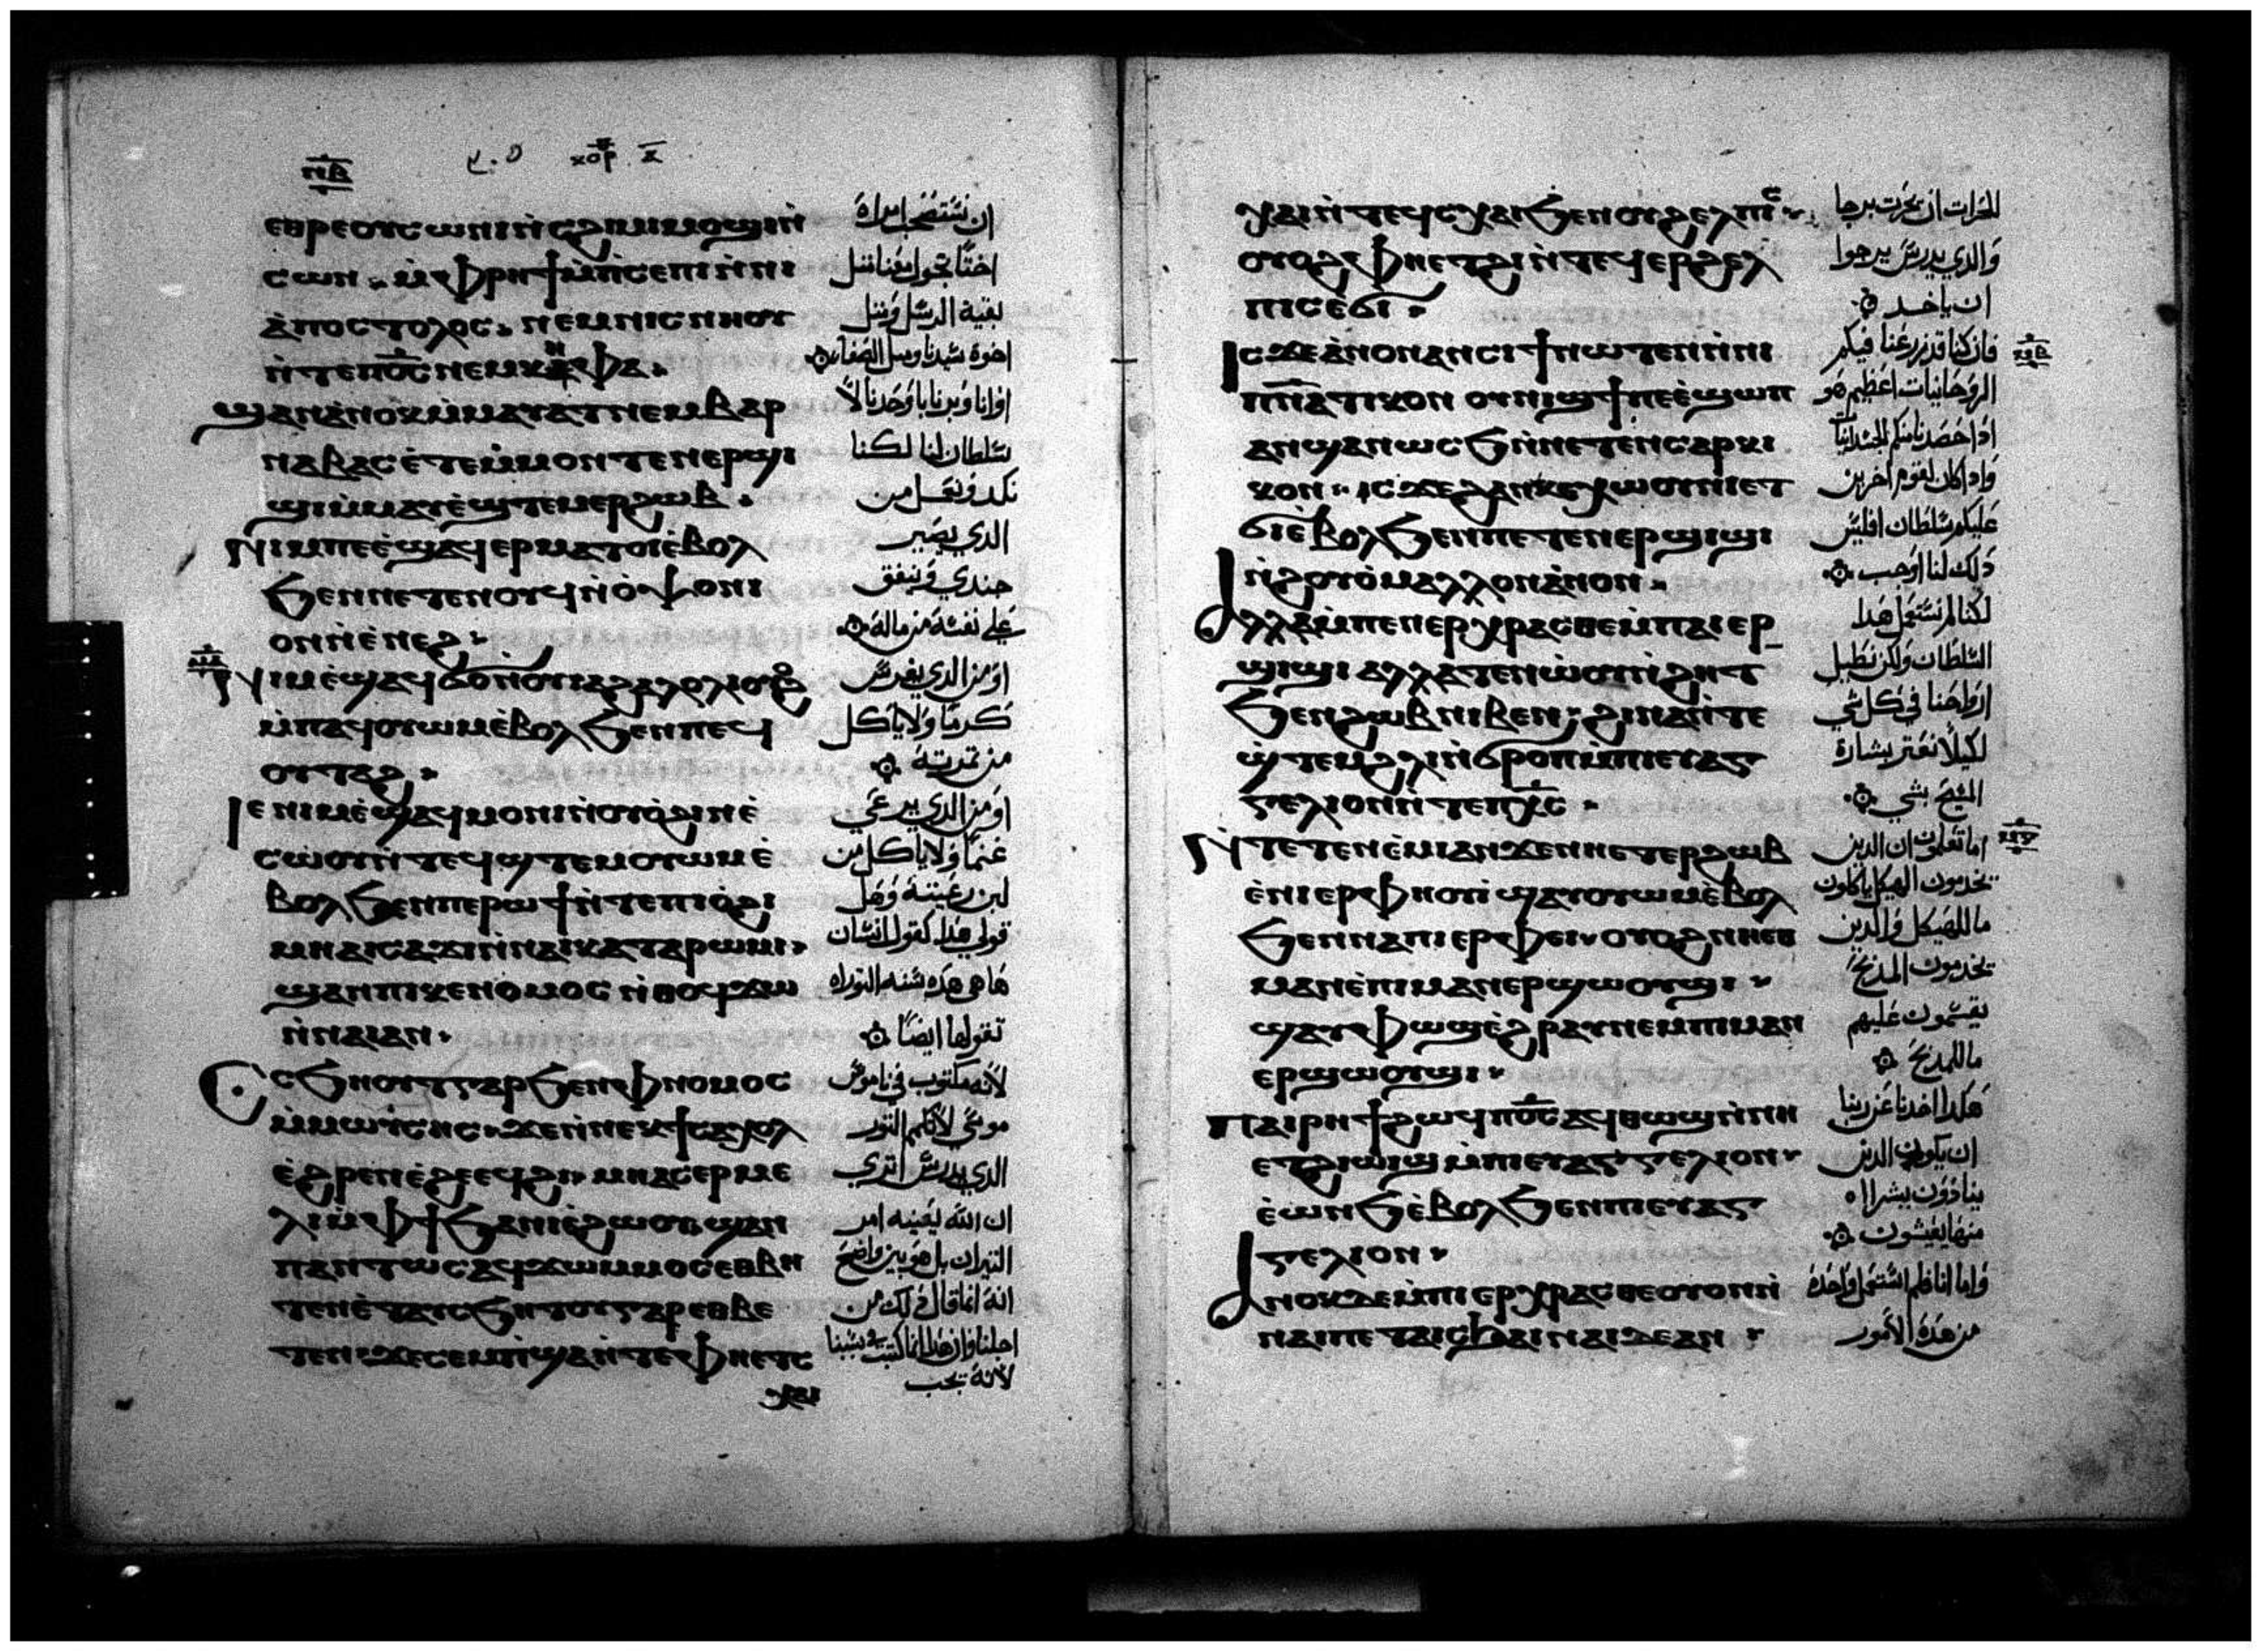 ⲛⲃ̅
ⲭⲟⲣ ⲁ̅
ⲉⲑⲣⲉⲟⲩⲥⲱⲛⲓⲛ̀ⲥϩⲓⲙⲓⲙⲟϣⲓⲛ̀
ⲥⲱⲛ ⲙ̀ⲫⲣⲏϯⲙ̀ⲡⲥⲉⲡⲓⲛ̀ⲛⲓ
ⲁ̀ⲡⲟⲥⲧⲟⲗⲟⲥ ⲛⲉⲙⲛⲓⲥⲛⲏⲟⲩ
ⲛ̀ⲧⲉⲡⲟ̅ⲥ̅ⲛⲉⲙⲕⲏⲫⲁ
ϣⲁⲛⲁ̀ⲛⲟⲕⲙ̀ⲙⲁⲩⲁⲧⲛⲉⲙⲃⲁⲣ
ⲛⲁⲃⲁⲥⲉ̀ⲧⲉⲙ̀ⲙⲟⲛⲧⲉⲛⲉⲣϣⲓ
ϣⲓⲙ̀ⲙⲁⲩⲉ̀ϣⲧⲉⲙⲉⲣϩⲱⲃ
ⲛⲓⲙⲡⲉⲉ̀ϣⲁϥⲉⲣⲙⲁⲧⲟⲓⲉ̀ⲃⲟⲗ
ϧⲉⲛⲡⲉⲧⲉⲛⲟⲩϥⲛ̀ⲟ̀ⲯⲟⲛⲓ
ⲟⲛⲛ̀ⲉ̀ⲛⲉϩ
ⲛⲓⲙⲉ̀ϣⲁϥϭⲟⲛ̀ⲟⲩⲓⲁϩⲁⲗⲟⲗⲓⲟⲩⲟϩ
ⲙ̀ⲡⲁϥⲟⲩⲱⲙⲉ̀ⲃⲟⲗϧⲉⲛⲡⲉϥ
ⲟⲩⲧⲁϩ
ⲓⲉⲛⲓⲙⲉ̀ϣⲁϥⲙⲟⲛⲓⲛ̀ⲟⲩⲟ̀ϩⲓⲛⲉ̀
ⲥⲱ̀ⲟⲩⲛ̀ⲧⲉϥϣⲧⲉⲙⲟⲩⲱⲙⲉ̀
ⲃⲟⲗϧⲉⲛⲡⲉⲣⲱϯⲛ̀ⲧⲉⲡⲓⲟ̀ϩⲓ
ⲙⲏⲁⲓⲥⲁϫⲓⲛ̀ⲛⲁⲓⲕⲁⲧⲁⲣⲱⲙⲓ
ϣⲁⲛⲡⲓⲕⲉⲛⲟⲙⲟⲥ ⲛ̀ⲑⲟϥϫⲱ
ⲛ̀ⲛⲁⲓⲁⲛ
ⲥϧⲏⲟⲩⲧⲅⲁⲣϧⲉⲛⲫⲛⲟⲙⲟⲥ
ⲙ̀ⲙⲱⲩ̀ⲥⲏⲥ ϫⲉⲛ̀ⲛⲉⲕϯⲥⲁϫⲟⲗ
ⲉ̀ϩⲣⲉⲛⲉ̀ϩⲉⲉϥϩⲓ ⲙⲏⲁⲥⲉⲣⲙⲉ
ⲗⲓⲙ̀ⲫϯϧⲁⲛⲓⲉ̀ϩⲱⲟⲩ ϣⲁⲛ
ⲡⲁⲛⲧⲱⲥⲁϥϫⲱⲙⲙⲟⲥⲉⲑⲃⲏ
ⲧⲉⲛⲉ̀ⲧⲁⲩⲥϧⲏⲧⲟⲩⲅⲁⲣⲉⲑⲃⲏ
ⲧⲉⲛ ϫⲉⲥⲉⲙⲡ̀ϣⲁⲛ̀ⲧⲉⲫⲏⲉⲧⲥ
ⲭⲁⲓ
ان نستصحب امراة
اختًا تجول معنا مثل
بقية الرسل ومثل
اخوة سيدنا ومثل الصفا
او انا وبرنابا وحدنا لا
سلطان لنا لكنا
نكد ونعمل من
الذي يصير
جندي وينفق
علي نفسه من ماله
او من الذي يغرس
كرمًا ولا ياكل
من ثمرته
او من الذي يرعي
غنمًا ولا ياكل من
لبن رعيته وهل
قولي هذا كقول انسان
ها هي هذه سنه التوراه
تقولها ايضًا
لانه مكتوب في ناموس
موسي لا تكم الثور
الذي يدرس اتري
ان الله يعنيه امر
الثيران بل هو بين واضح
انه انما قال ذلك من
اجلنا وان هذا انما كتبت بسببنا
لانه يجب
ⲭⲁⲓⲛ̀ⲧⲉϥⲥⲭⲁⲓϧⲉⲛⲟⲩϩⲉⲗⲡⲓⲥ
ⲟⲩⲟϩ ⲫⲏⲉⲧϩⲓⲛ̀ⲧⲉϥⲉⲣϩⲉⲗ
ⲡⲓⲥⲉ̀ϭⲓ
ⲓⲥϫⲉⲁ̀ⲛⲟⲛⲁⲛⲥⲓϯⲛⲱⲧⲉⲛⲛ̀ⲛⲓ
ⲡ̅ⲛ̅ⲁ̅ⲧⲓⲕⲟⲛ ⲟⲩⲛⲓϣϯⲡⲉⲉ̀ϣⲱⲡ
ⲁⲛϣⲁⲛⲱⲥϧⲛ̀ⲛⲉⲧⲉⲛⲥⲁⲣⲕⲓ
ⲕⲟⲛ ⲓⲥϫⲉϩⲁⲛⲕⲉⲭⲱⲟⲩⲛⲓⲉⲧ
ϭⲓⲉ̀ⲃⲟⲗϧⲉⲛⲡⲉⲧⲉⲛⲉⲣϣⲓϣⲓ
ⲛ̀ϩⲟⲩⲟ̀ⲙⲁⲗⲗⲟⲛⲁ̀ⲛⲟⲛ
ⲁⲗⲗⲁⲙ̀ⲡⲉⲛⲉⲣⲭⲣⲁⲥⲑⲉⲙ̀ⲡⲁⲓⲉⲣ
ϣⲓϣⲓ ⲁⲗⲗⲁⲧⲉⲛⲱ̀ⲟⲩⲛ̀ϩⲏⲧ
ϧⲉⲛϩⲱⲃⲛⲓⲃⲉⲛ ϩⲓⲛⲁⲛ̀ⲧⲉ
ϣ̀ⲧⲉⲙϩⲗⲓⲛ̀ϭⲣⲟⲡⲙ̀ⲡⲓⲉⲩⲁⲅ
ⲅⲉⲗⲓⲟⲛⲛ̀ⲧⲉⲡⲭ̅ⲥ̅
ⲛ̀ⲧⲉⲧⲉⲛⲉ̀ⲙⲓⲁⲛϫⲉⲛⲏⲉⲧⲉⲣϩⲱⲃ
ⲉ̀ⲛⲓⲉⲣⲫⲏⲟⲩⲓ̀ ϣⲁⲩⲟⲩⲱⲙⲉ̀ⲃⲟⲗ
ϧⲉⲛⲛⲁⲡⲓⲉⲣⲫⲉⲓ ⲟⲩⲟϩⲛⲏⲉⲑ
ⲙⲏⲛⲉ̀ⲡⲓⲙⲁⲛⲉⲣϣⲱⲟⲩϣⲓ
ϣⲁⲩⲫⲱϣⲉ̀ϩⲣⲁⲩⲛⲉⲙⲡⲓⲙⲁⲛ
ⲉⲣϣⲱⲟⲩϣⲓ
ⲡⲁⲓⲣⲏϯϩⲱϥⲡⲟ̅ⲥ̅ⲁϥⲑⲱϣⲛ̀ⲛⲏ
ⲉⲧϩⲓⲱⲓϣⲙ̀ⲡⲓⲉⲩⲁⲅⲅⲉⲗⲓⲟⲛ
ⲉ̀ⲱⲛϧⲉ̀ⲃⲟⲗϧⲉⲛⲡⲓⲉⲩⲁⲅ
ⲅⲉⲗⲓⲟⲛ
ⲁⲛⲟⲕⲇⲉⲙ̀ⲡⲓⲉⲣⲭⲣⲁⲥⲑⲉⲟⲩⲟⲛⲛ̀
ⲛⲁⲓⲡⲉⲧⲁⲓⲥϧⲁⲓⲛⲁⲓⲇⲉⲁⲛ
للحراث ان يحرث برجا
والذي يدرس يرجوا
ان ياخد
فان كنا قد زرعنا فيكم
الروحانيات اعظيم هو
اذا حصدنا منكم الجسدانيات
واذا كان لقوم اخرين
عليكم سلطان افليس
ذلك لنا اوجب
لكنا لم نستعمل هذا
السلطان ولكن نطيل
ارواحنا في كل شي
لكيلا نعثر بشارة
المسيح بشي
اما تعلمون ان الذين
يخدمون الهيكل ياكلون
ما للهيكل والذين
يخدمون المذبح
يقسمون عليهم
ما للمذبح
هكذا اخدنا عن ربنا
ان يكون الذين
ينادون ببشراه
منها يعيشون
واما انا فلم استعمل واحدة
من هذه الامور